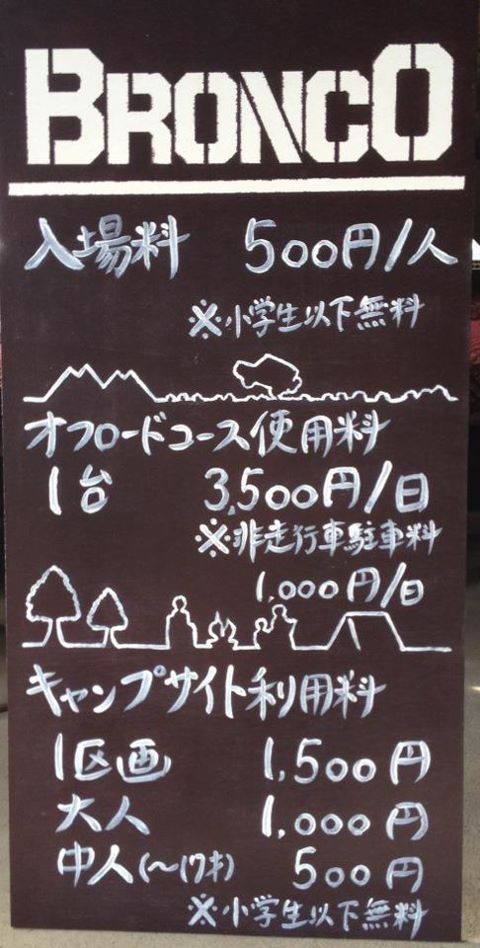 BRONCO
入場料 500円/人
※小学生以下無料
オフロードコース使用料
1台 3,500円/日
※非走行車駐車料
1,000円/日
キャンプサイト利用料
1区画 1,500円
大人 1,000円
中人(～17才) 500円
※小学生以下無料